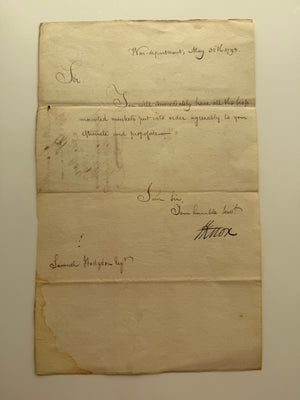 War department, May 30th 1793.
Sir
You will immediately have all the
mounted muskets put into order agreeably to your
estimate and proposal
I am Sir
Your humble Servt
HKnox
Samuel Hodgdon Esqr